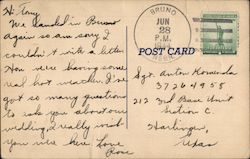 BRUNO
JUN
28
P.M.
NEBR.
POST CARD
Hi Tony,
We landed in Bruno
again so am sorry I
couldn't write a letter.
Hon were having some
real hot weather. I've
got so many questions
to ask you about our
wedding. I really wish
you was here. Love
Rose
Sgt. Anton Kovenda
37264955
212 3rd Base Unit
Section C.
Harlingen,
Texas